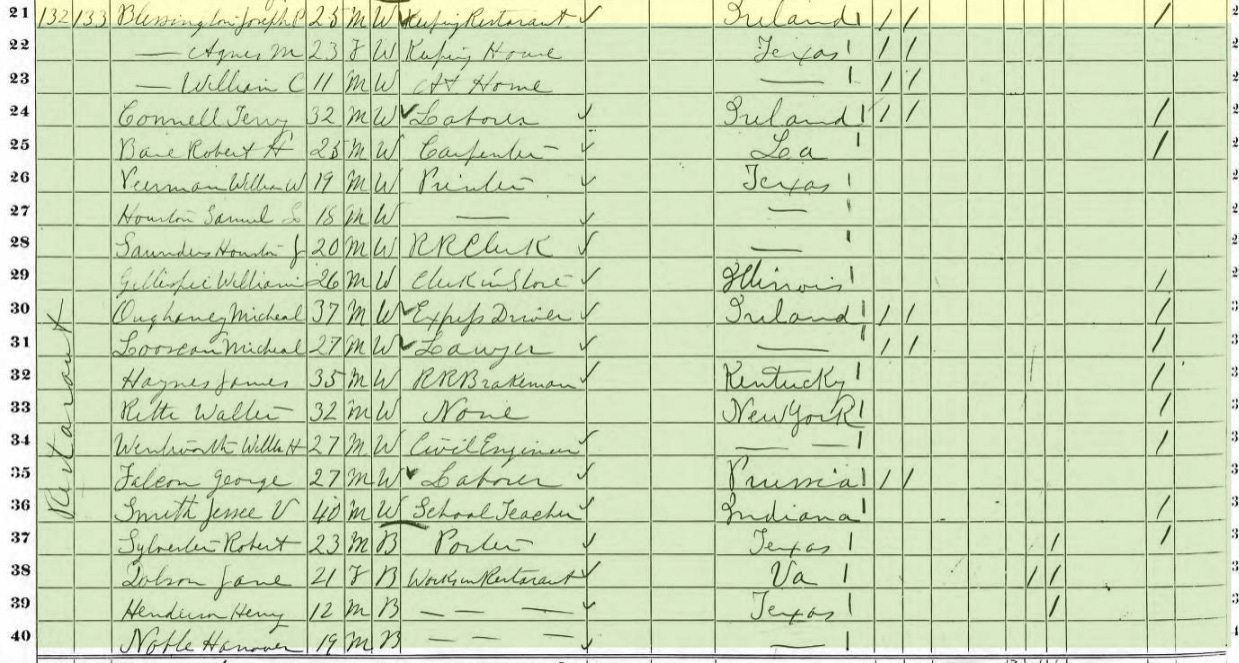 21 132 133 Blessington Joseph P 25 M W Keeping Restarant ✓ Ireland 1 / / /
22 — Agnes M 23 F W Keeping House Texas 1 / /
23 — William C 11 M W At Home — 1 / /
24 Connell Terry 32 M W ✓ Laborer ✓ Ireland 1 / / /
25 Robert H 25 M W Carpenter ✓ La 1 /
26 William W 19 M W Printer ✓ Texas 1
27 Houston Samuel 18 M W — ✓ — 1
28 Saunders Houston J 20 M W R R Clerk ✓ — 1
29 Gillispie William 26 M W Clerk in Store ✓ Illinois 1 /
30 Micheal 37 M W ✓ Express Driver ✓ Ireland 1 / / /
31 Looscan Micheal 27 M W ✓ Lawyer ✓ — 1 / / /
32 Haynes James 35 M W R R Brakeman ✓ Kentucky 1 /
33 Walter 32 M W None New York 1 /
34 Wentworth H 27 M W Civil Engineer ✓ — — 1 /
35 Falcon George 27 M W ✓ Laborer ✓ Prussia 1 / /
36 Smith Jesse V 40 M W School Teacher ✓ Indiana 1 /
37 Sylvester Robert 23 M B Porter ✓ Texas 1 / /
38 Dobson Jane 21 F B Works in Restarant ✓ Va 1 / /
39 Henderson Henry 12 M B — — — ✓ Texas 1 /
40 Noble Hanover 19 M B — — — ✓ — 1
Restarant